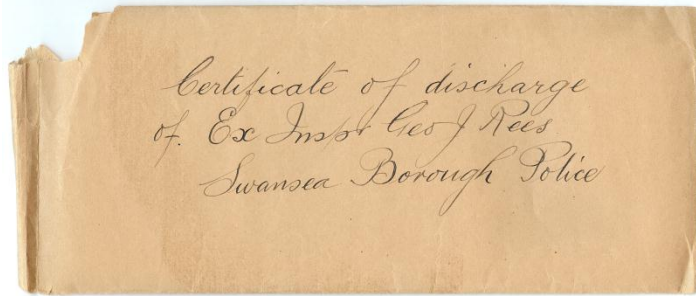 Certificate of discharge
of. Ex Inspr Geo J Rees
Swansea Borough Police